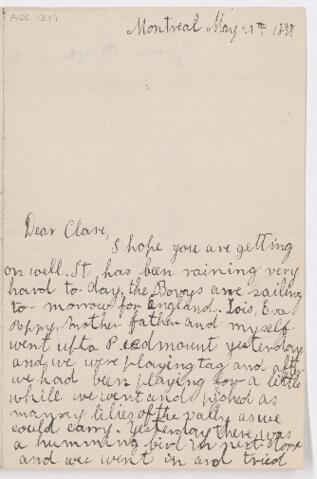 ACC 1211
Montreal May
Dear Clare,
I hope you are getting
on well. It has been raining very
hard to day, the Boveys are sailing
to-morrow for England. Lois, Eva
Poppy, Mother father and myself
went up to Piedmount yesterday
and we were playing tag and after
we had been playing for a little
while we went and picked as
many lilies of the vally as we
could carry. Yesterday there was
a humming bird in next door
and we went in and tried